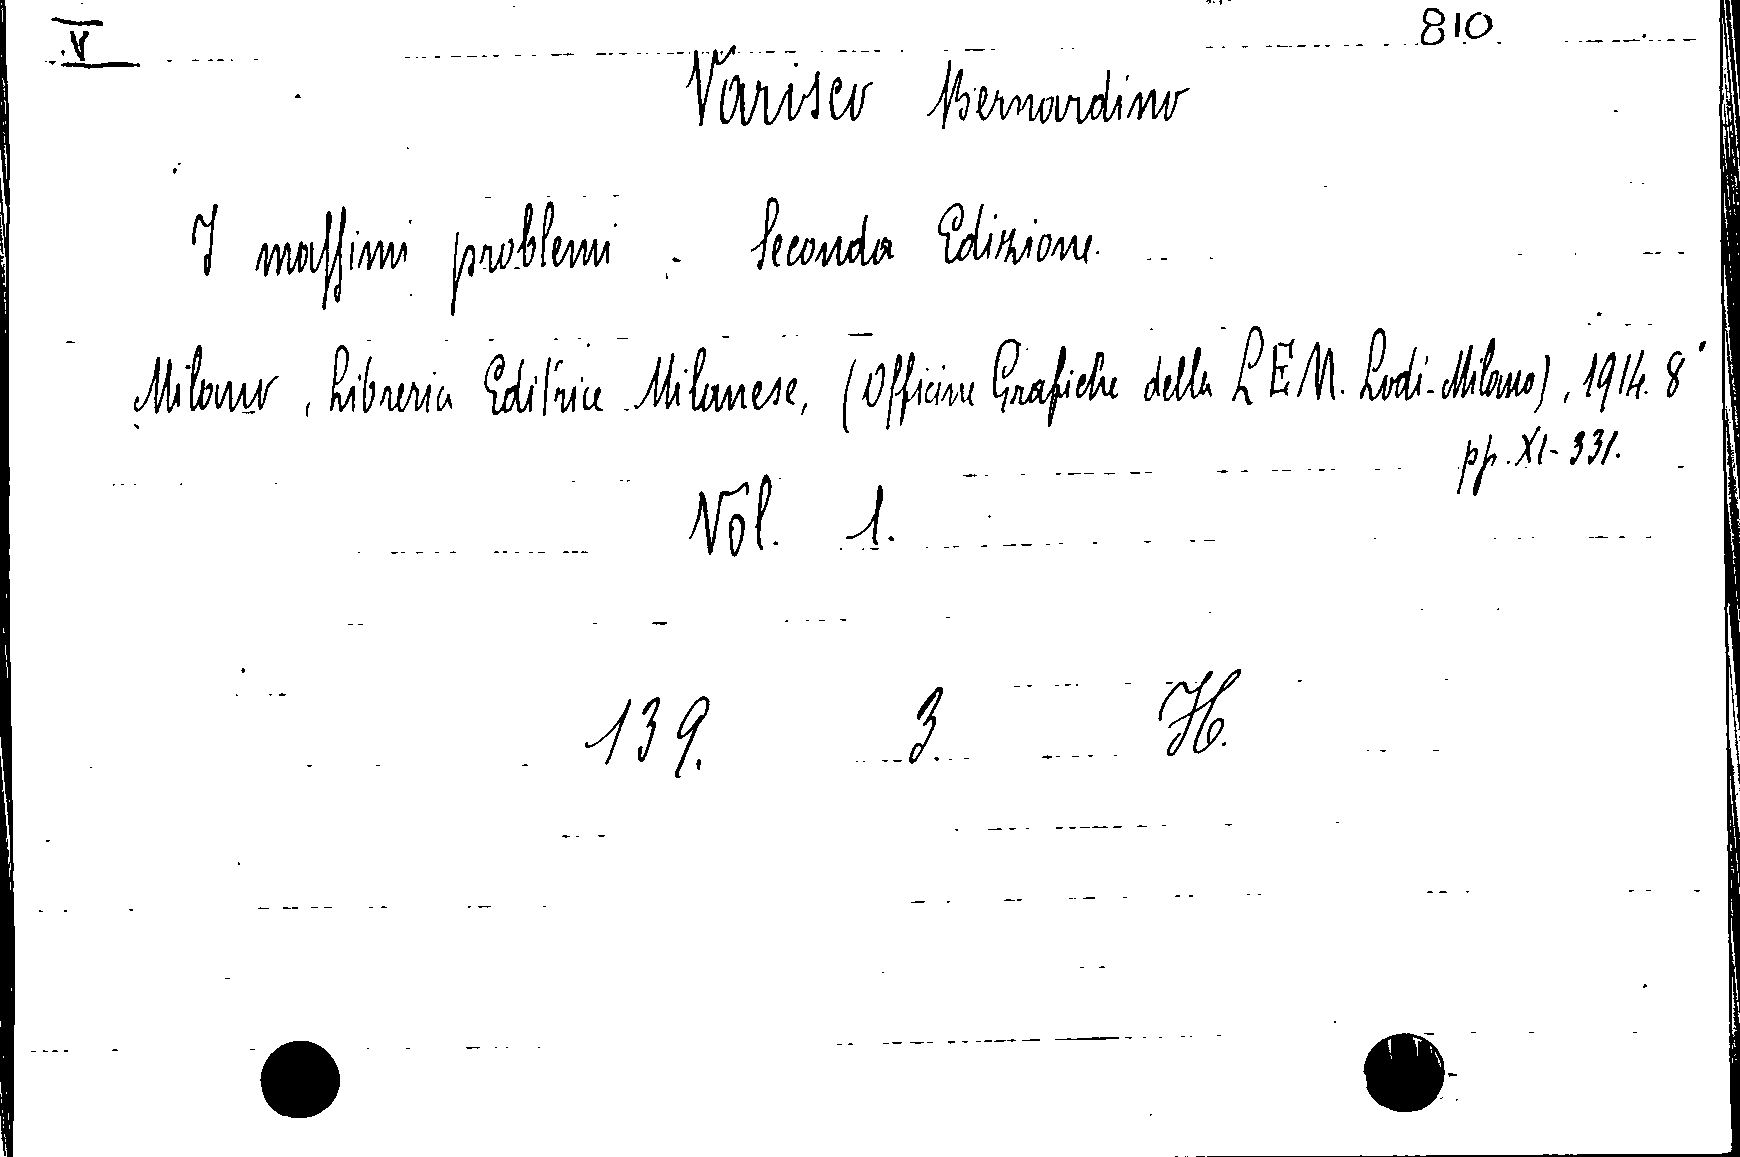 V 810
Varisco Bernardino
I massimi problemi. Seconda Edizione.
Milano, Libreria Editrice Milanese, (Officine Grafiche della L E M. Lodi-Milano), 1914. 8°
pp. XI-331.
Vol. 1.
139. 3. H.